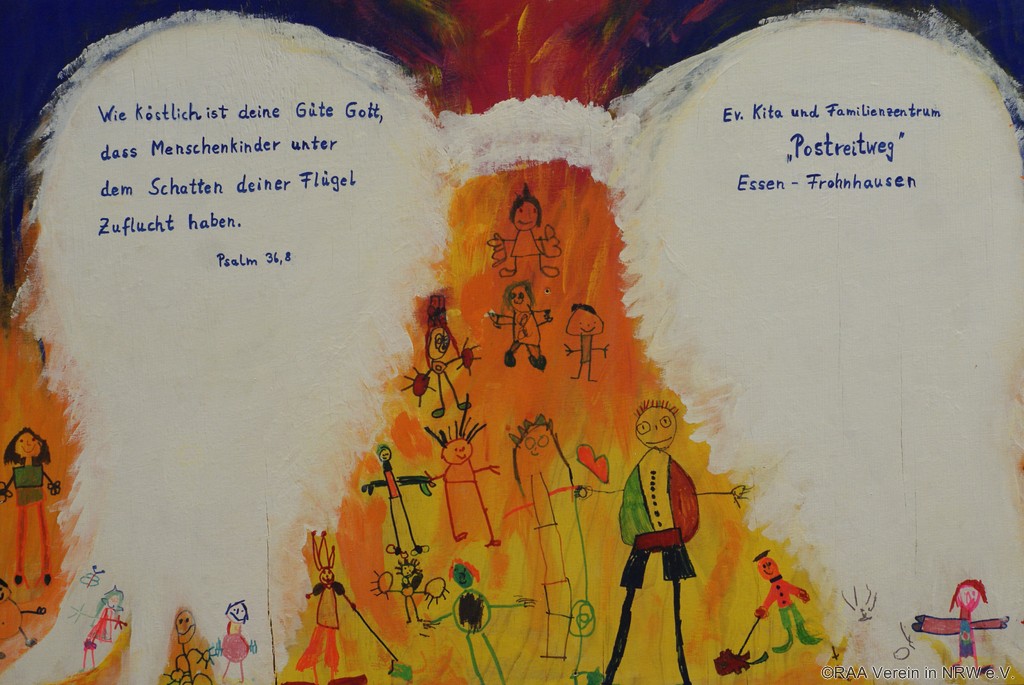 Wie köstlich ist deine Güte Gott,
dass Menschenkinder unter
dem Schatten deiner Flügel
Zuflucht haben.
Psalm 36,8
Ev. Kita und Familienzentrum
„Postreitweg"
Essen - Frohnhausen
©RAA Verein in NRW e.V.